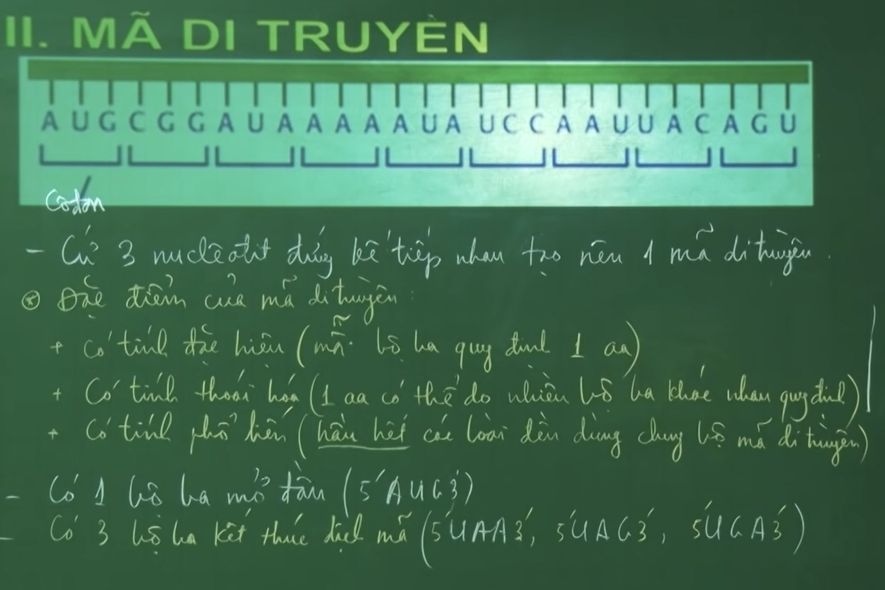 II. MÃ DI TRUYỀN
A U G C G G A U A A A A A U A U C C A A U U A C A G U
Codon
- Cứ 3 nucleotit đứng kế tiếp nhau tạo nên 1 mã di truyền.
⊛ Đặc điểm của mã di truyền:
+ Có tính đặc hiệu (mỗi bộ ba quy định 1 aa)
+ Có tính thoái hóa (1 aa có thể do nhiều bộ ba khác nhau quy định)
+ Có tính phổ biến (hầu hết các loài đều dùng chung bộ mã di truyền)
- Có 1 bộ ba mở đầu (5'AUG3')
- Có 3 bộ ba kết thúc dịch mã (5'UAA3', 5'UAG3', 5'UGA3')